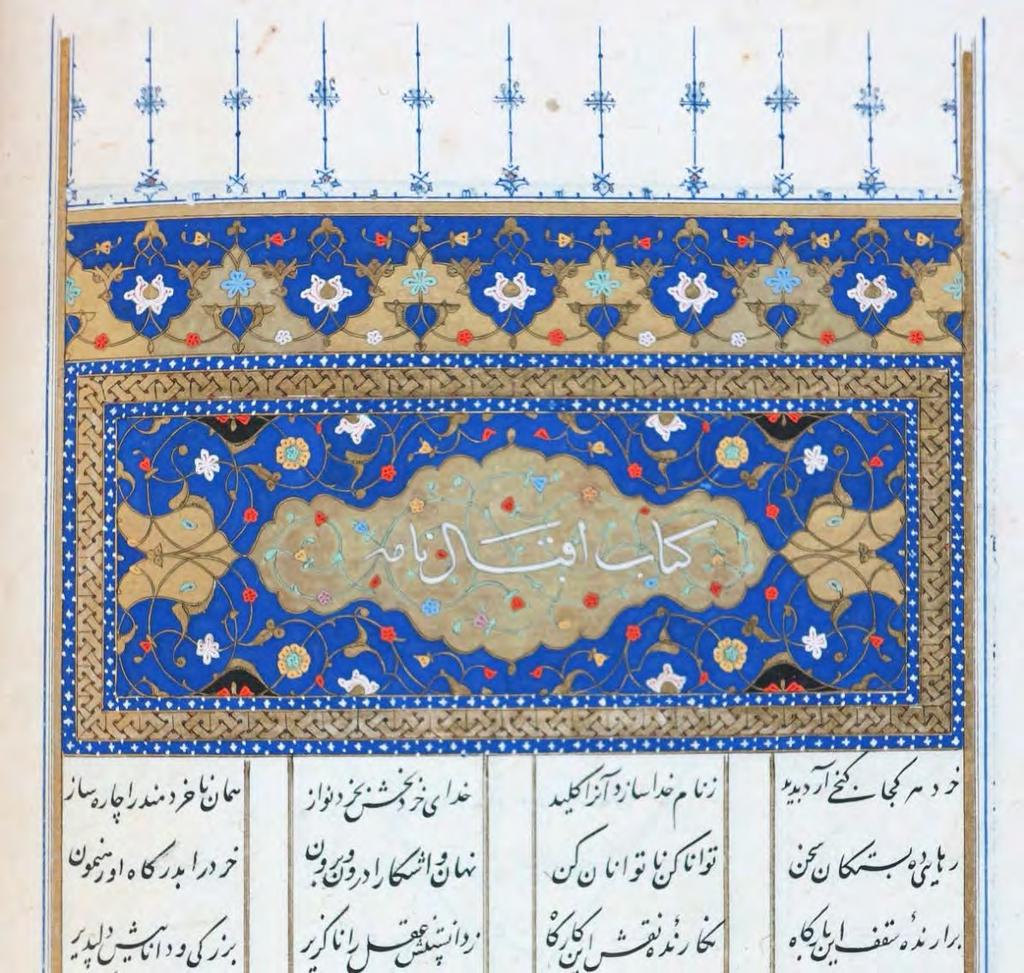 کتاب اقبال نامه
خرد هر کجا گنجی آرد بدید ز نام خدا سازد آنرا کلید خدای خرد بخش بخرد نواز همان ناخردمند را چاره ساز
رهایی ده بستگان سخن توانا کن ناتوانان کن نهان و اشکارا درون و برون خرد را بدرگاه او رهنمون
برارنده سقف این بارگاه نگارندهٔ نقش این کارگاه ز دانستنش عقل را ناگزیر بزرگی و داناییش دلپذیر